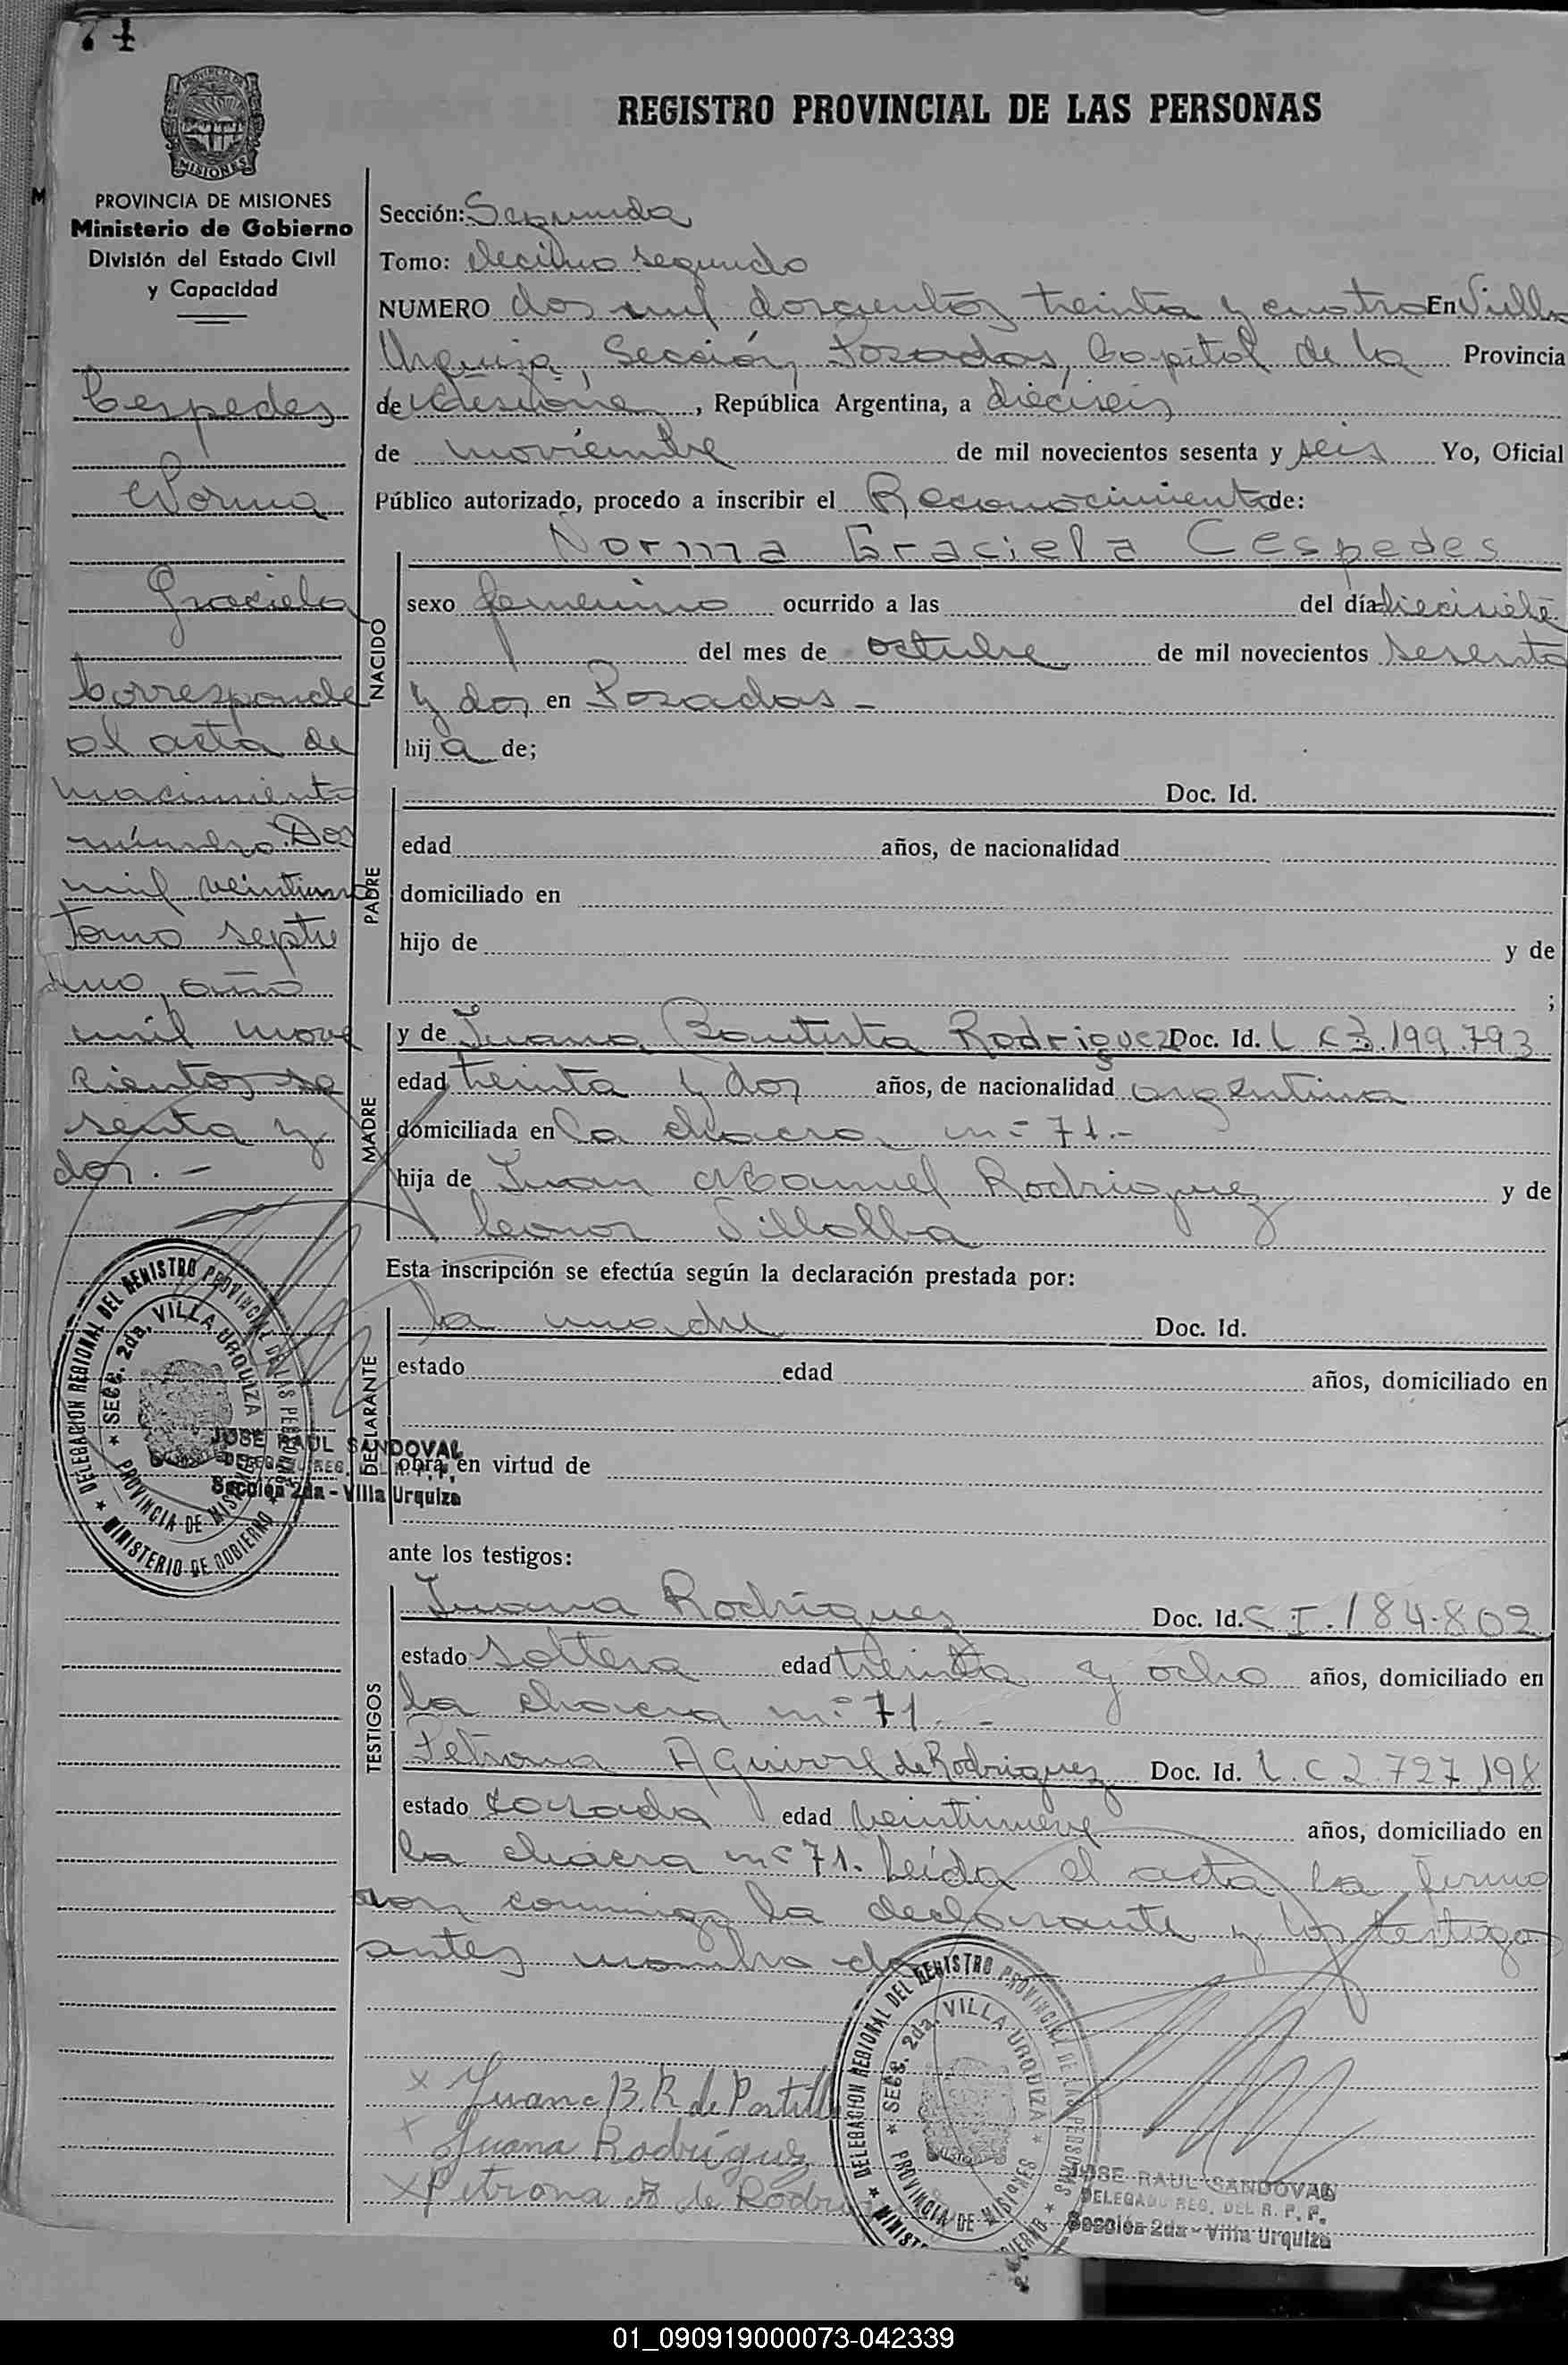 74
MISIONES
PROVINCIA DE MISIONES
Ministerio de Gobierno
División del Estado Civil
y Capacidad
Cespedes
Norma
Graciela
Corresponde
al acta de
nacimiento
número Dos
mil veintiuno
tomo septi
mo, año
mil nove
cientos se
senta y
dos.-
DELEGACION REGIONAL DEL REGISTRO PROVINCIAL DE LAS PERSONAS
SECC. 2da. VILLA URQUIZA
PROVINCIA DE MISIONES
MINISTERIO DE GOBIERNO
JOSE RAUL SANDOVAL
DELEGADO REG. DEL R. P. P.
Sección 2da - Villa Urquiza
REGISTRO PROVINCIAL DE LAS PERSONAS
Sección: Segunda
Tomo: decimo segundo
NUMERO dos mil doscientos treinta y cuatro En Villa
Urquiza, Sección, Posadas, Capital de la Provincia
de Misiones, República Argentina, a dieciseis
de noviembre de mil novecientos sesenta y seis Yo, Oficial
Público autorizado, procedo a inscribir el Reconocimiento de:
Norma Graciela Cespedes
NACIDO
sexo femenino ocurrido a las del día diecisiete
del mes de octubre de mil novecientos sesenta
y dos en Posadas -
hija de;
PADRE
Doc. Id.
edad años, de nacionalidad
domiciliado en
hijo de y de
;
MADRE
y de Juana Bautista Rodriguez Doc. Id. L C 3.199.793
edad treinta y dos años, de nacionalidad argentina
domiciliada en la chacra nº 71.-
hija de Juan Manuel Rodriguez y de
Leonor Villalba
Esta inscripción se efectúa según la declaración prestada por:
DECLARANTE
la madre Doc. Id.
estado edad años, domiciliado en
obra en virtud de
ante los testigos:
TESTIGOS
Juana Rodríguez Doc. Id. C I. 184.802
estado soltera edad treinta y ocho años, domiciliado en
la chacra nº 71.-
Petrona Aguirre de Rodriguez Doc. Id. L.C 2.727.198
estado casada edad veintinueve años, domiciliado en
la chacra nº 71. Leída el acta la firma
con conmigo la declarante y los testigos
antes nombrados
x Juana B. R de Portillo
+ Juana Rodríguez
x Petrona A de Rodri
DELEGACION REGIONAL DEL REGISTRO PROVINCIAL DE LAS PERSONAS
SECC. 2da. VILLA URQUIZA
PROVINCIA DE MISIONES
JOSE RAUL SANDOVAL
DELEGADO REG. DEL R. P. P.
Sección 2da - Villa Urquiza
01_090919000073-042339